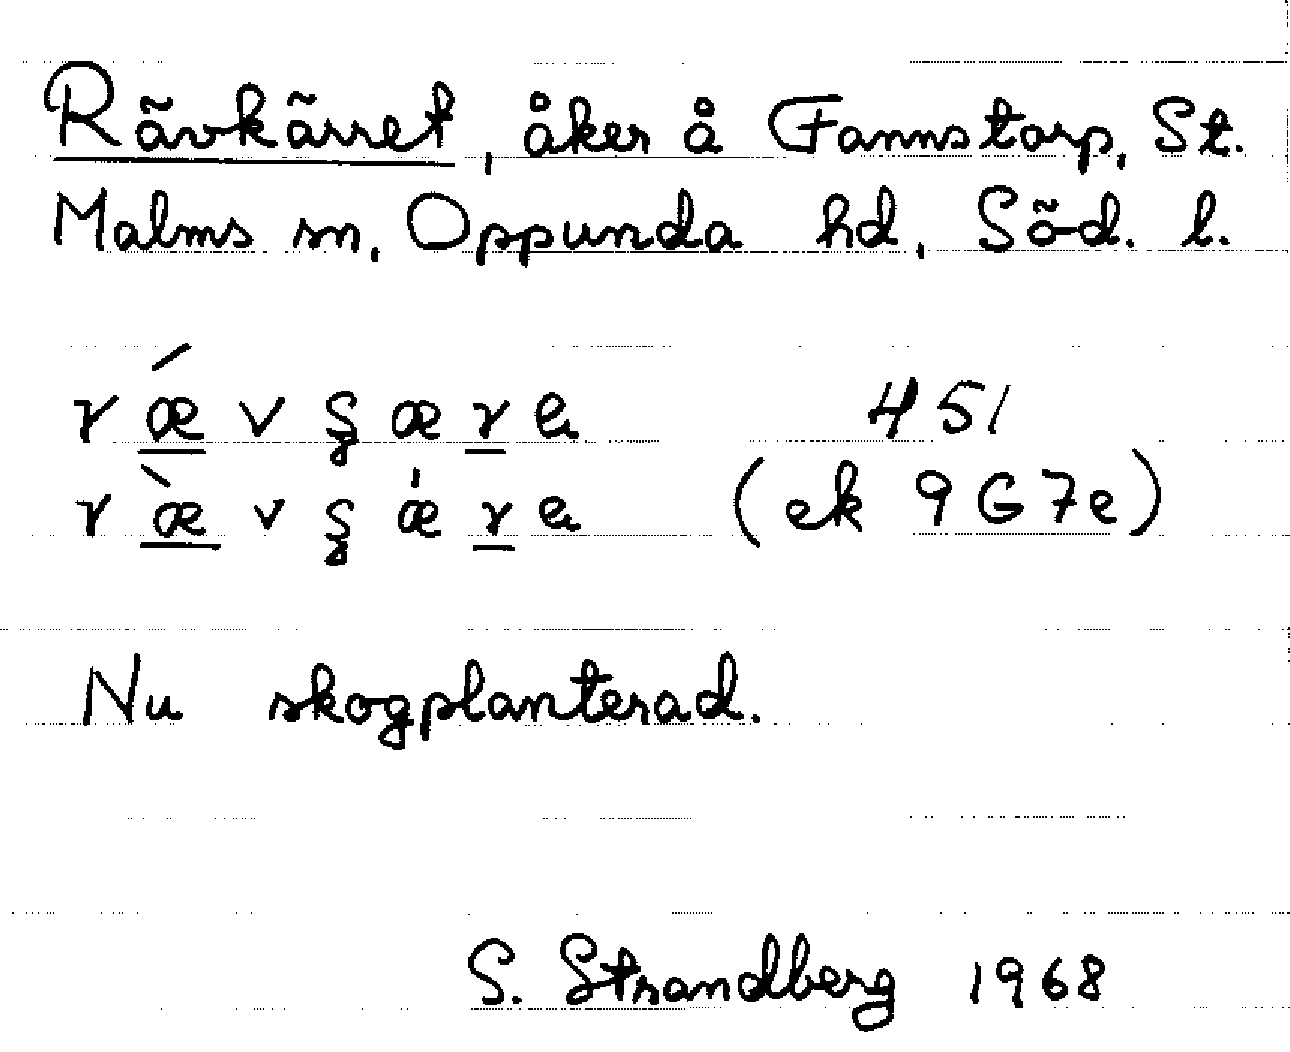 Rävkärret, åker å Fannstorp, St.
Malms sn, Oppunda hd, Söd. l.
r ǽ v ʂ æ r e 451
r æ̀ v ʂ æ̍ r e (ek 9G7e)
Nu skogplanterad.
S. Strandberg 1968